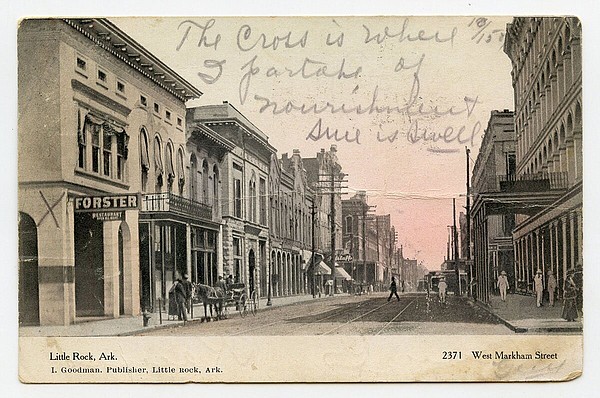 The Cross is where
I partake of
nourishment
Sure is Swell
FORSTER
RESTAURANT
Little Rock, Ark.
2371 West Markham Street
I. Goodman. Publisher, Little Rock, Ark.